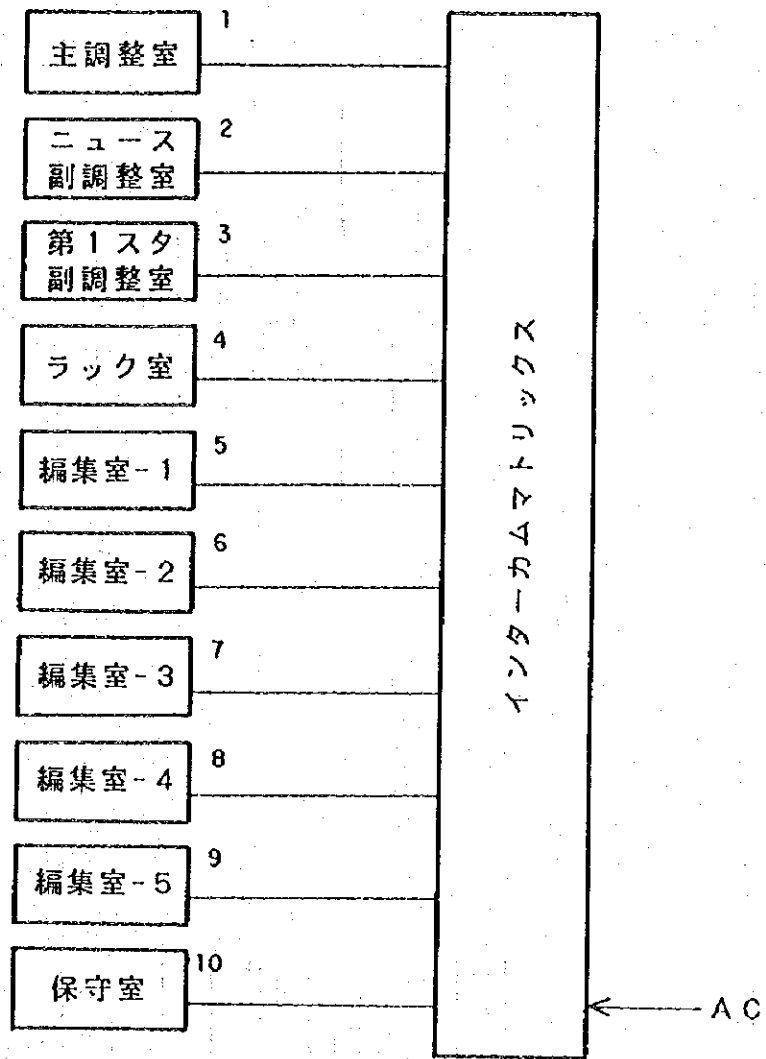 1
主調整室
2
ニュース
副調整室
3
第1スタ
副調整室
4
ラック室
5
編集室-1
6
編集室-2
7
編集室-3
8
編集室-4
9
編集室-5
10
保守室
インターカムマトリックス
AC